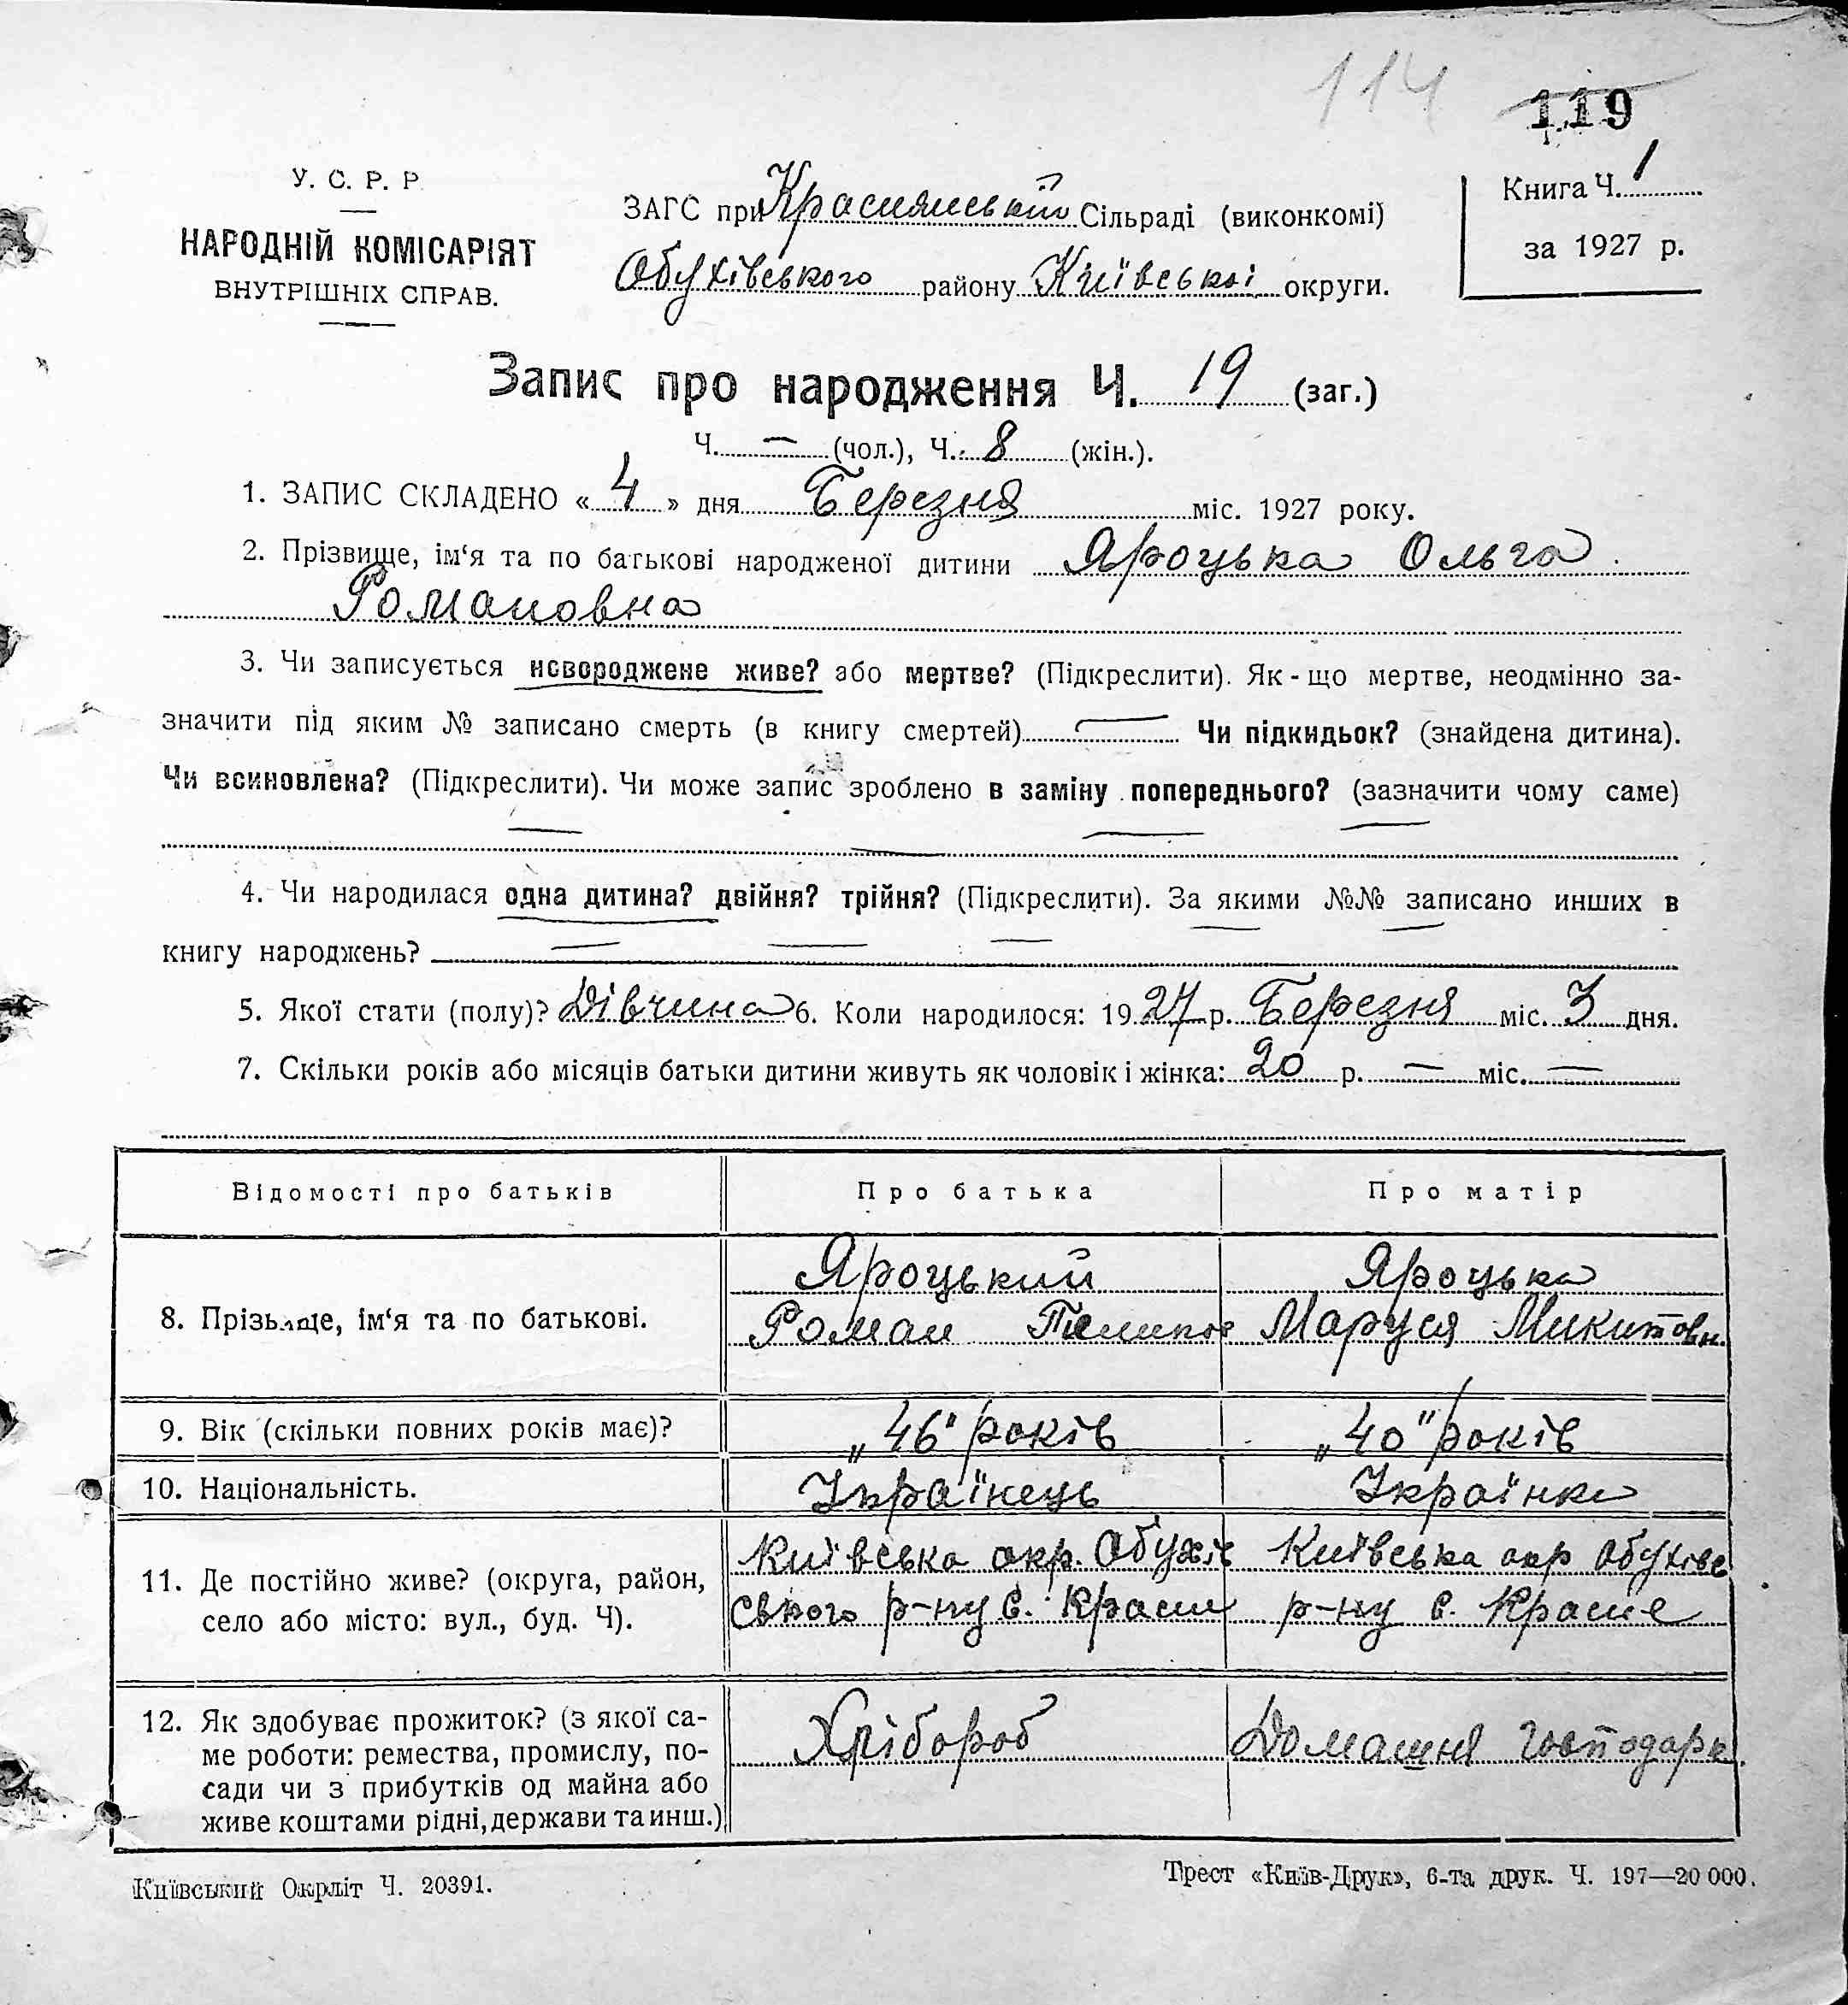 114 119
У. С. Р. Р.
НАРОДНІЙ КОМІСАРІЯТ
ВНУТРІШНІХ СПРАВ.
ЗАГС при Краснянській Сільраді (виконкомі)
Обухівського району Київської округи.
Книга Ч. 1
за 1927 р.
Запис про народження Ч. 19 (заг.)
Ч. — (чол.), Ч. 8 (жін.).
1. ЗАПИС СКЛАДЕНО « 4 » дня Березня міс. 1927 року.
2. Прізвище, ім‘я та по батькові народженої дитини Яроцька Ольга
Романовна
3. Чи записується новороджене живе? або мертве? (Підкреслити). Як-що мертве, неодмінно за-
значити під яким № записано смерть (в книгу смертей) — Чи підкидьок? (знайдена дитина).
Чи всиновлена? (Підкреслити). Чи може запис зроблено в заміну попереднього? (зазначити чому саме)
4. Чи народилася одна дитина? двійня? трійня? (Підкреслити). За якими №№ записано инших в
книгу народжень? —
5. Якої стати (полу)? Дівчина 6. Коли народилося: 1927 р. Березня міс. 3 дня.
7. Скільки років або місяців батьки дитини живуть як чоловік і жінка: 20 р. — міс. —
Відомості про батьків Про батька Про матір
8. Прізвище, ім‘я та по батькові.
Яроцький
Роман
Яроцька
Маруся Микитовн.
9. Вік (скільки повних років має)? „46" років „40" років
10. Національність. Українець Українка
11. Де постійно живе? (округа, район,
село або місто: вул., буд. Ч).
Київська окр. Обухів
ського р-ну с. Красне
Київська окр Обухівс
р-ну с. Красне
12. Як здобуває прожиток? (з якої са-
ме роботи: ремества, промислу, по-
сади чи з прибутків од майна або
живе коштами рідні, держави та инш.)
Хлібороб
Домашня господарк.
Київський Окрліт Ч. 20391.
Трест «Київ-Друк», 6-та друк. Ч. 197—20 000.